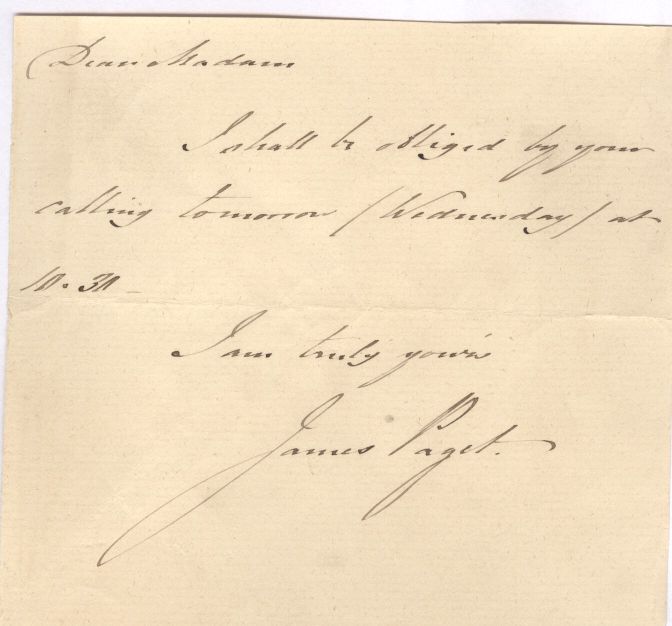 Dear Madam
I shall be obliged by your
calling tomorrow (Wednesday) at
10.30
I am truly your's
James Paget.